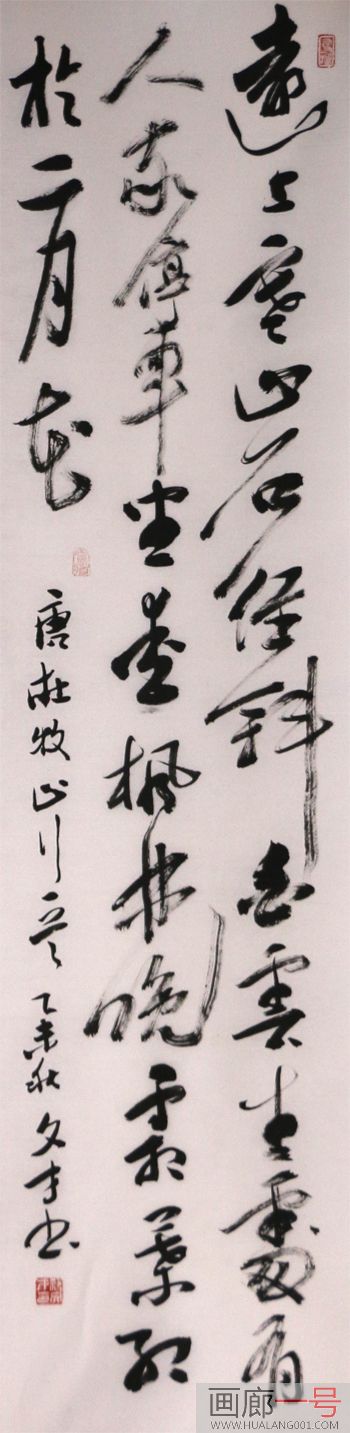 遠上寒山石徑斜白雲生處有
人家停車坐愛楓林晚霜葉紅
於二月花
唐杜牧山行一首乙未秋文才书
画廊一号
WWW.HUALANG001.COM